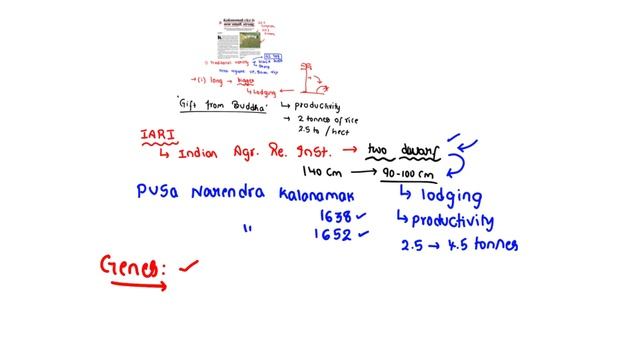 Kalanamak rice is
now small, strong
1) Traditional variety
→ (1) long → bigger
↳ Lodging
'Gift from Buddha'
↳ productivity
→ 2 tonnes of rice
2.5 to / hect
IARI
↳ Indian Agr. Re. Inst. → two dwarf
140 cm → 90-100 cm
Pusa Narendra Kalanamak
1638 ✓
" 1652 ✓
↳ lodging
↳ productivity
2.5 → 4.5 tonnes
Genes: ✓